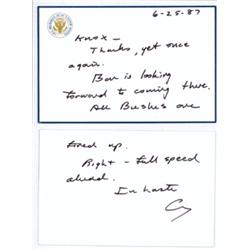 6-25-87
Knox —
Thanks, yet once
again.
Bar is looking
forward to coming there.
All Bushes are
fired up.
Right — full speed
ahead.
In haste